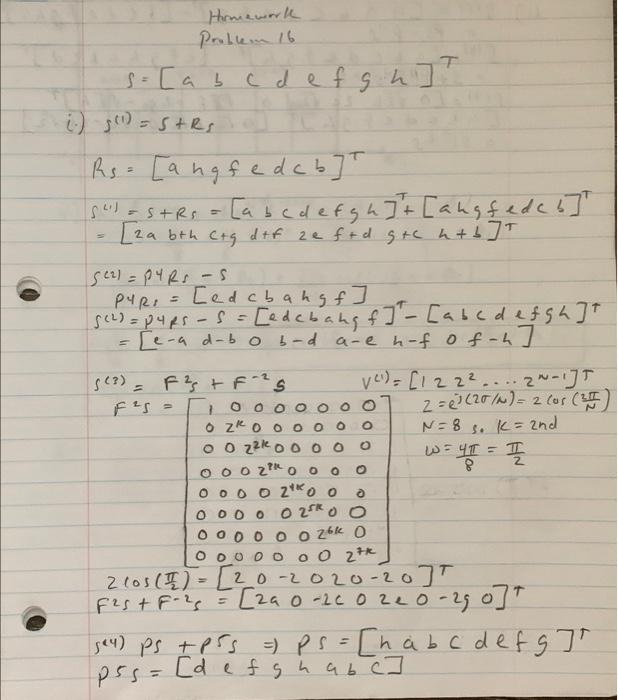 Homework
Problem 16
s = [a b c d e f g h]ᵀ
i.) s⁽¹⁾ = s + Rs
Rs = [a h g f e d c b]ᵀ
s⁽¹⁾ = s + Rs = [a b c d e f g h]ᵀ + [a h g f e d c b]ᵀ
= [2a b+h c+g d+f 2e f+d g+c h+b]ᵀ
s⁽²⁾ = P4Rs - s
P4Rs = [e d c b a h g f]
s⁽²⁾ = P4Rs - s = [e d c b a h g f]ᵀ - [a b c d e f g h]ᵀ
= [e-a d-b 0 b-d a-e h-f 0 f-h]
s⁽³⁾ = F²s + F⁻²s
V⁽¹⁾ = [1 z z² .... z^(N-1)]ᵀ
z = e^j(2π/N) = 2 cos(2π/N)
N = 8 so K = 2nd
ω = 4π/8 = π/2
F²s = [1 0 0 0 0 0 0 0
0 z^K 0 0 0 0 0 0
0 0 z^2K 0 0 0 0 0
0 0 0 z^3K 0 0 0 0
0 0 0 0 z^4K 0 0 0
0 0 0 0 0 z^5K 0 0
0 0 0 0 0 0 z^6K 0
0 0 0 0 0 0 0 z^7K]
2 cos(π/2) = [2 0 -2 0 2 0 -2 0]ᵀ
F²s + F⁻²s = [2a 0 -2c 0 2e 0 -2g 0]ᵀ
s⁽⁴⁾ Ps + P⁵s ⇒ Ps = [h a b c d e f g]ᵀ
P⁵s = [d e f g h a b c]